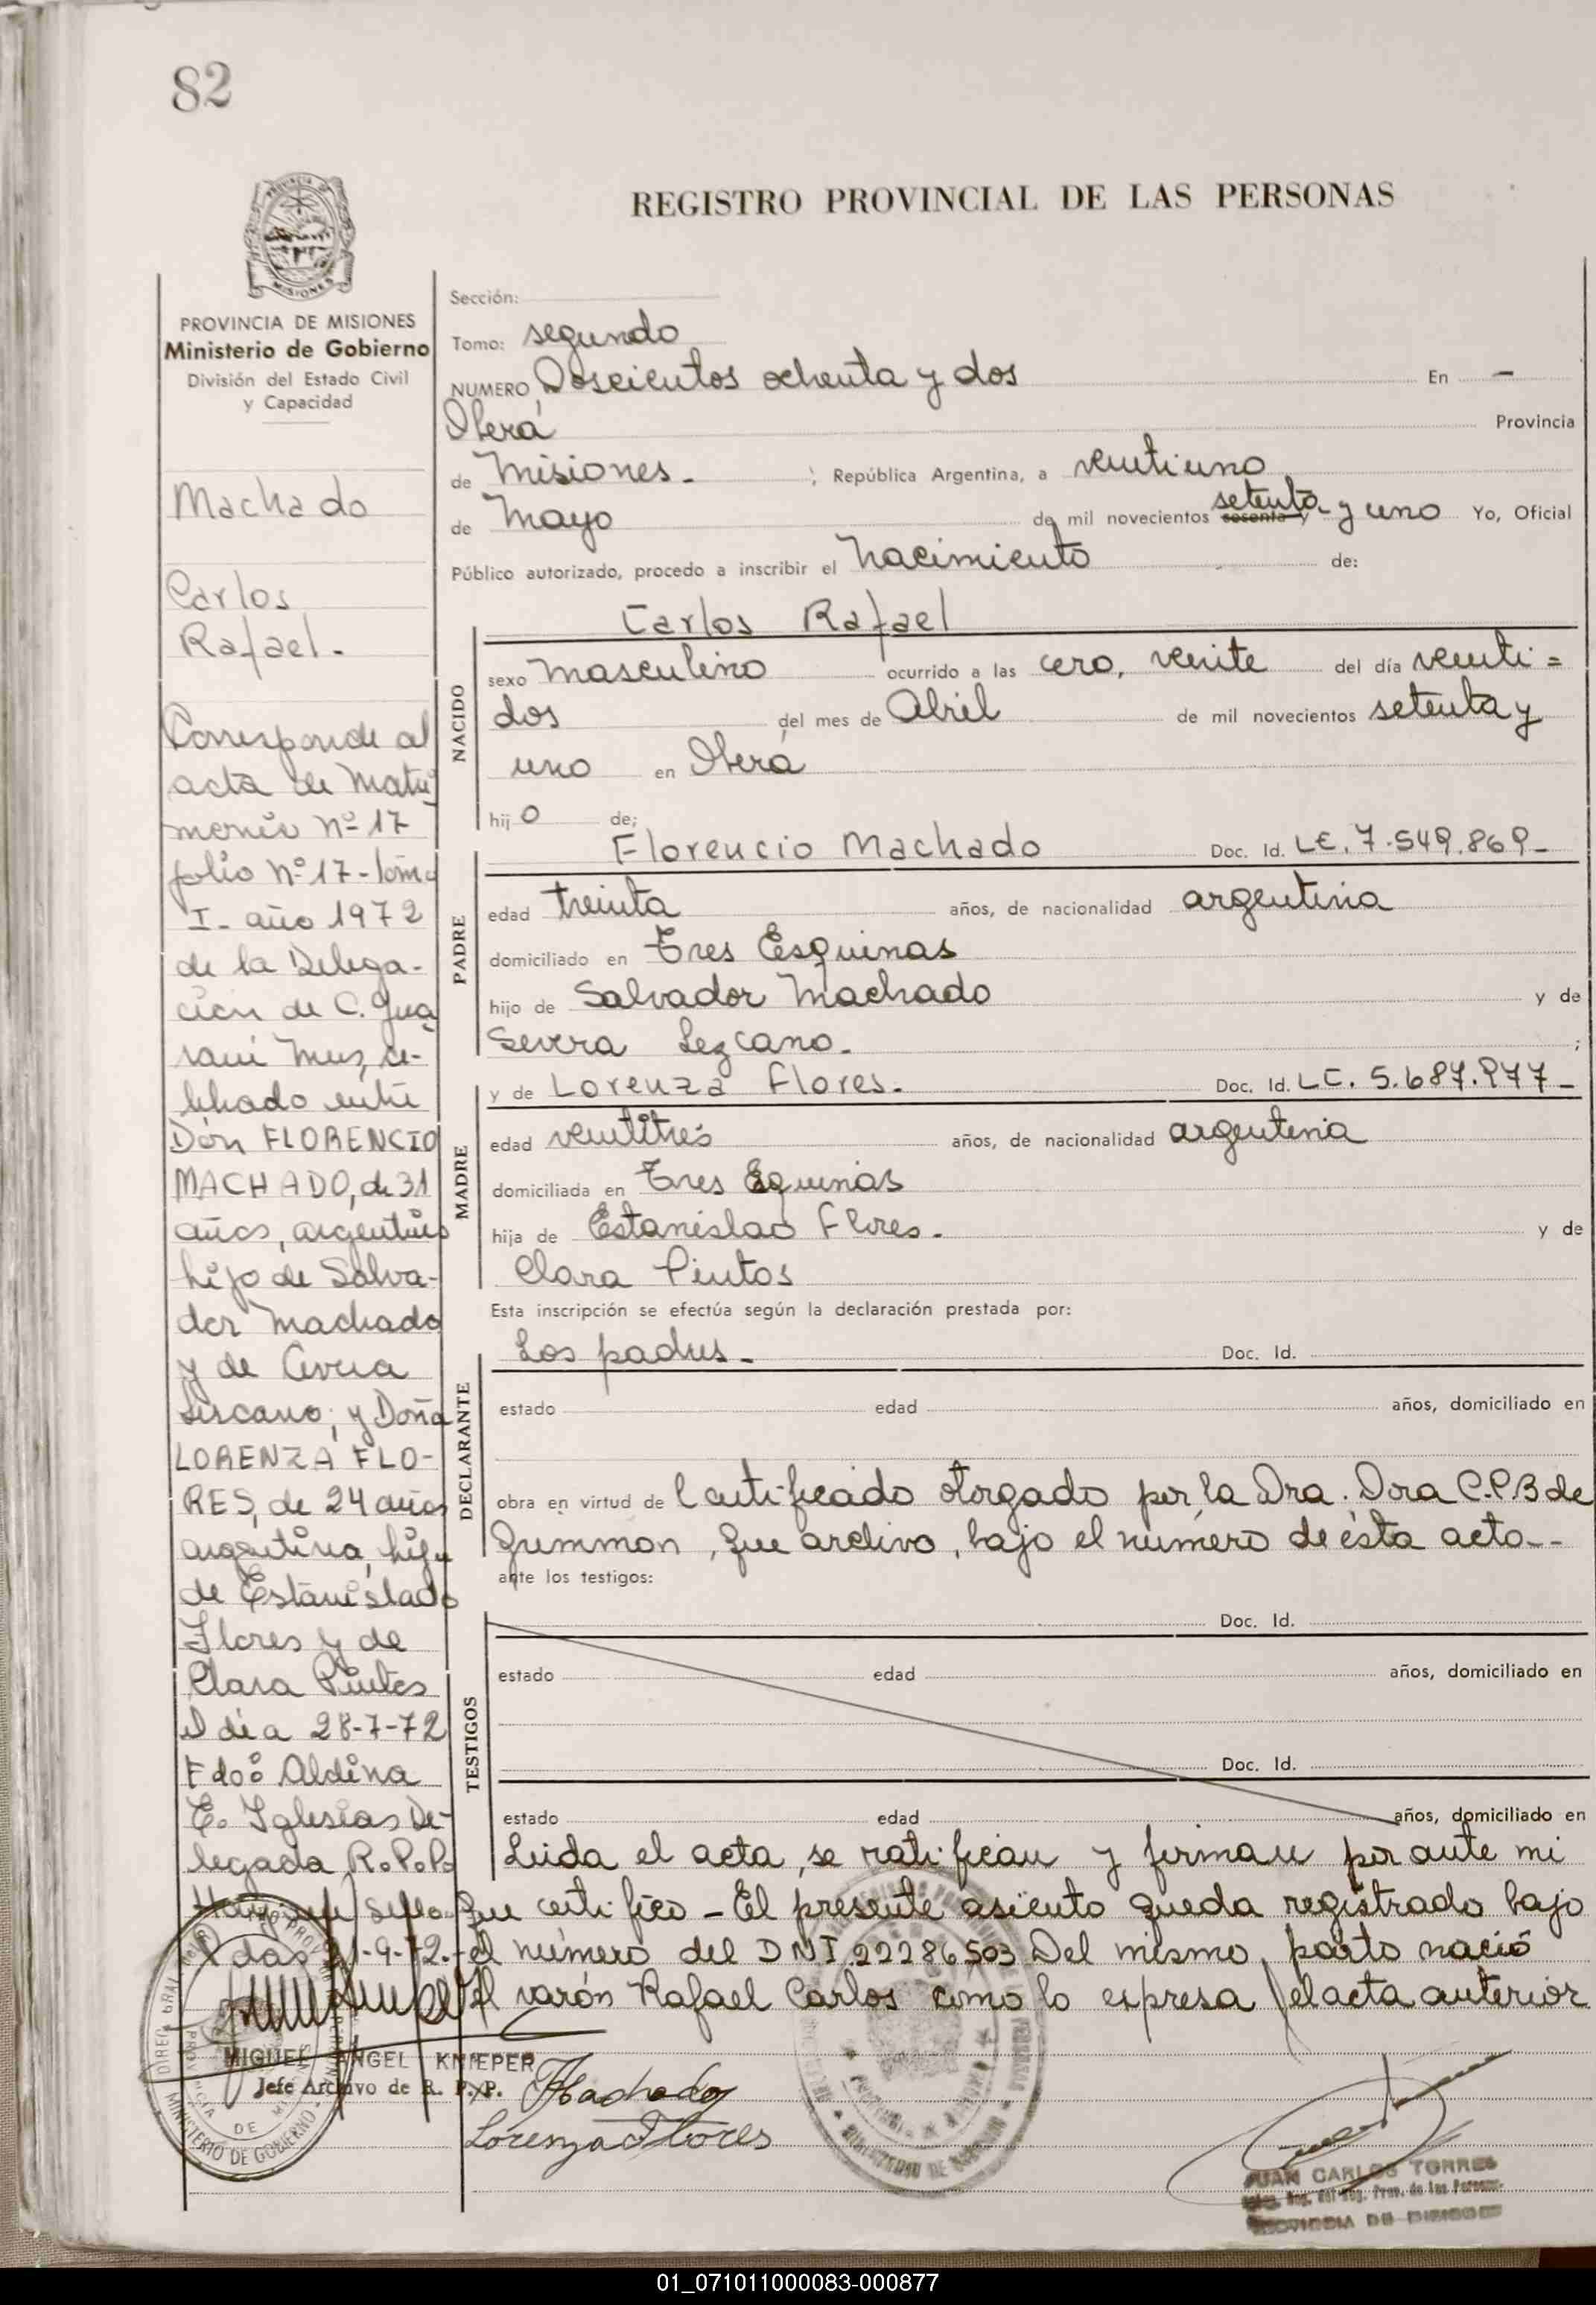 82
REGISTRO PROVINCIAL DE LAS PERSONAS
MISIONES
PROVINCIA DE MISIONES
Ministerio de Gobierno
División del Estado Civil
y Capacidad
Machado
Carlos
Rafael.-
Corresponde al
acta de Matri
monio Nº 17
folio Nº 17 - tomo
I - año 1972
de la Delega-
ción de C. Gua
raní Mnes, ce-
lebrado entre
Don FLORENCIO
MACHADO, de 31
años, argentino
hijo de Salva-
dor Machado
y de
Lescano; y Doña
LORENZA FLO-
RES, de 24 años
argentina, hija
de Estanislado
Flores y de
Clara Pintos
el día 28-7-72
Fdo: Aldina
E. Iglesias De-
legada R.P.P.
Hay sello
Pdas 21-9-72.-
MIGUEL ANGEL KNIEPER
Jefe Archivo de R. P. P.
Sección:
Tomo: segundo
NUMERO Doscientos ochenta y dos En -
Oberá Provincia
de Misiones.- ; República Argentina, a veintiuno
de Mayo de mil novecientos sesenta y setenta y uno Yo, Oficial
Público autorizado, procedo a inscribir el Nacimiento de:
Carlos Rafael
NACIDO
sexo masculino ocurrido a las cero, veinte del día veinti=
dos del mes de Abril de mil novecientos setenta y
uno en Oberá
hijo de;
PADRE
Florencio Machado Doc. Id. LE. 7.549.869-
edad treinta años, de nacionalidad argentina
domiciliado en Tres Esquinas
hijo de Salvador Machado y de
Severa Lezcano. ;
MADRE
y de Lorenza Flores.- Doc. Id. LC. 5.687.977-
edad veintitrés años, de nacionalidad argentina
domiciliada en Tres Equinas
hija de Estanislao Flores. y de
Clara Pintos
Esta inscripción se efectúa según la declaración prestada por:
DECLARANTE
Los padres.- Doc. Id.
estado edad años, domiciliado en
obra en virtud de l certificado otorgado por la Dra. Dora C.P.B de
que archivo, bajo el número de ésta acta--
ante los testigos:
TESTIGOS
Doc. Id.
estado edad años, domiciliado en
Doc. Id.
estado edad años, domiciliado en
Leida el acta, se ratifican y firman por ante mi
que certifico - El presente asiento queda registrado bajo
el número del DNI 22286503 Del mismo parto nació
el varón Rafael Carlos como lo expresa el acta anterior
Machado
Lorenza Flores
MINISTERIO DE GOBIERNO
JUAN CARLOS TORRES
PROVINCIA DE MISIONES
01_071011000083-000877